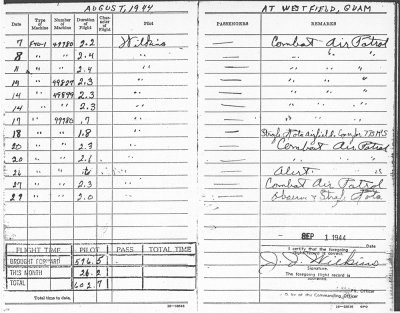 AUGUST, 1944
AT WESTFIELD, GUAM
DATE Type of Machine Number of Machine Duration of Flight Character of Flight Pilot PASSENGERS REMARKS
7 49780 2.2 Wilkins — Combat Air Patrol
8 " " 2.4 " — " " "
11 " " 2.4 " — " " "
14 " 49829 2.3 — " " "
14 " 49899 2.3 — " " "
14 " " 2.3 — " " "
17 " 49780 .7 — " " "
18 " " 1.8 — Strafe Rota airfield. Cover for TBMS
20 " " 2.3 — Combat Air Patrol
20 " " 2.1 — " " "
26 " " — Alert
27 " " 2.3 — Combat Air Patrol
29 " " 2.0 — Observe & Strafe Rota
FLIGHT TIME PILOT PASS TOTAL TIME
BROUGHT FORWARD 576.5
THIS MONTH 26.2
TOTAL 602.7
Total time to date,
SEP 1 1944
Date
I certify that the foregoing flight record is correct.
J. J. Wilkins
Signature.
The foregoing flight record is approved.
Flt. Officer
By order of the Commanding Officer